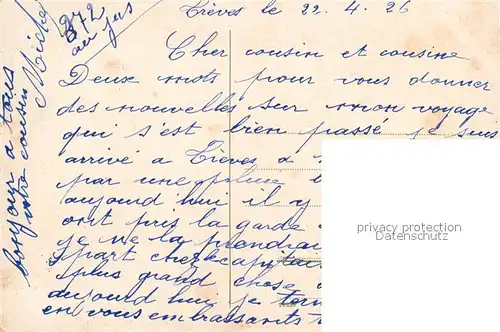 Trèves le 22. 4. 26
Cher cousin et cousine
Deux mots pour vous donner
des nouvelles sur mon voyage
qui s'est bien passé je suis
arrivé a Trèves a
par une pluie
aujourd hui il y
ont pris la garde
je ne la prendrai
a part
plus grand chose
aujourd hui je
en vous embrassants
bonjour a tous
votre cousin
Michel
privacy protection
Datenschutz